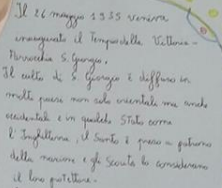 Il 26 maggio 1935 veniva
inaugurato il Tempio della Vittoria -
Parrocchia S. Giorgio.
Il culto di S. Giorgio è diffuso in
molti paesi non solo orientali ma anche
occidentali e in qualche Stato come
l'Inghilterra, il Santo è preso a patrono
della nazione e gli Scouts lo considerano
il loro protettore.